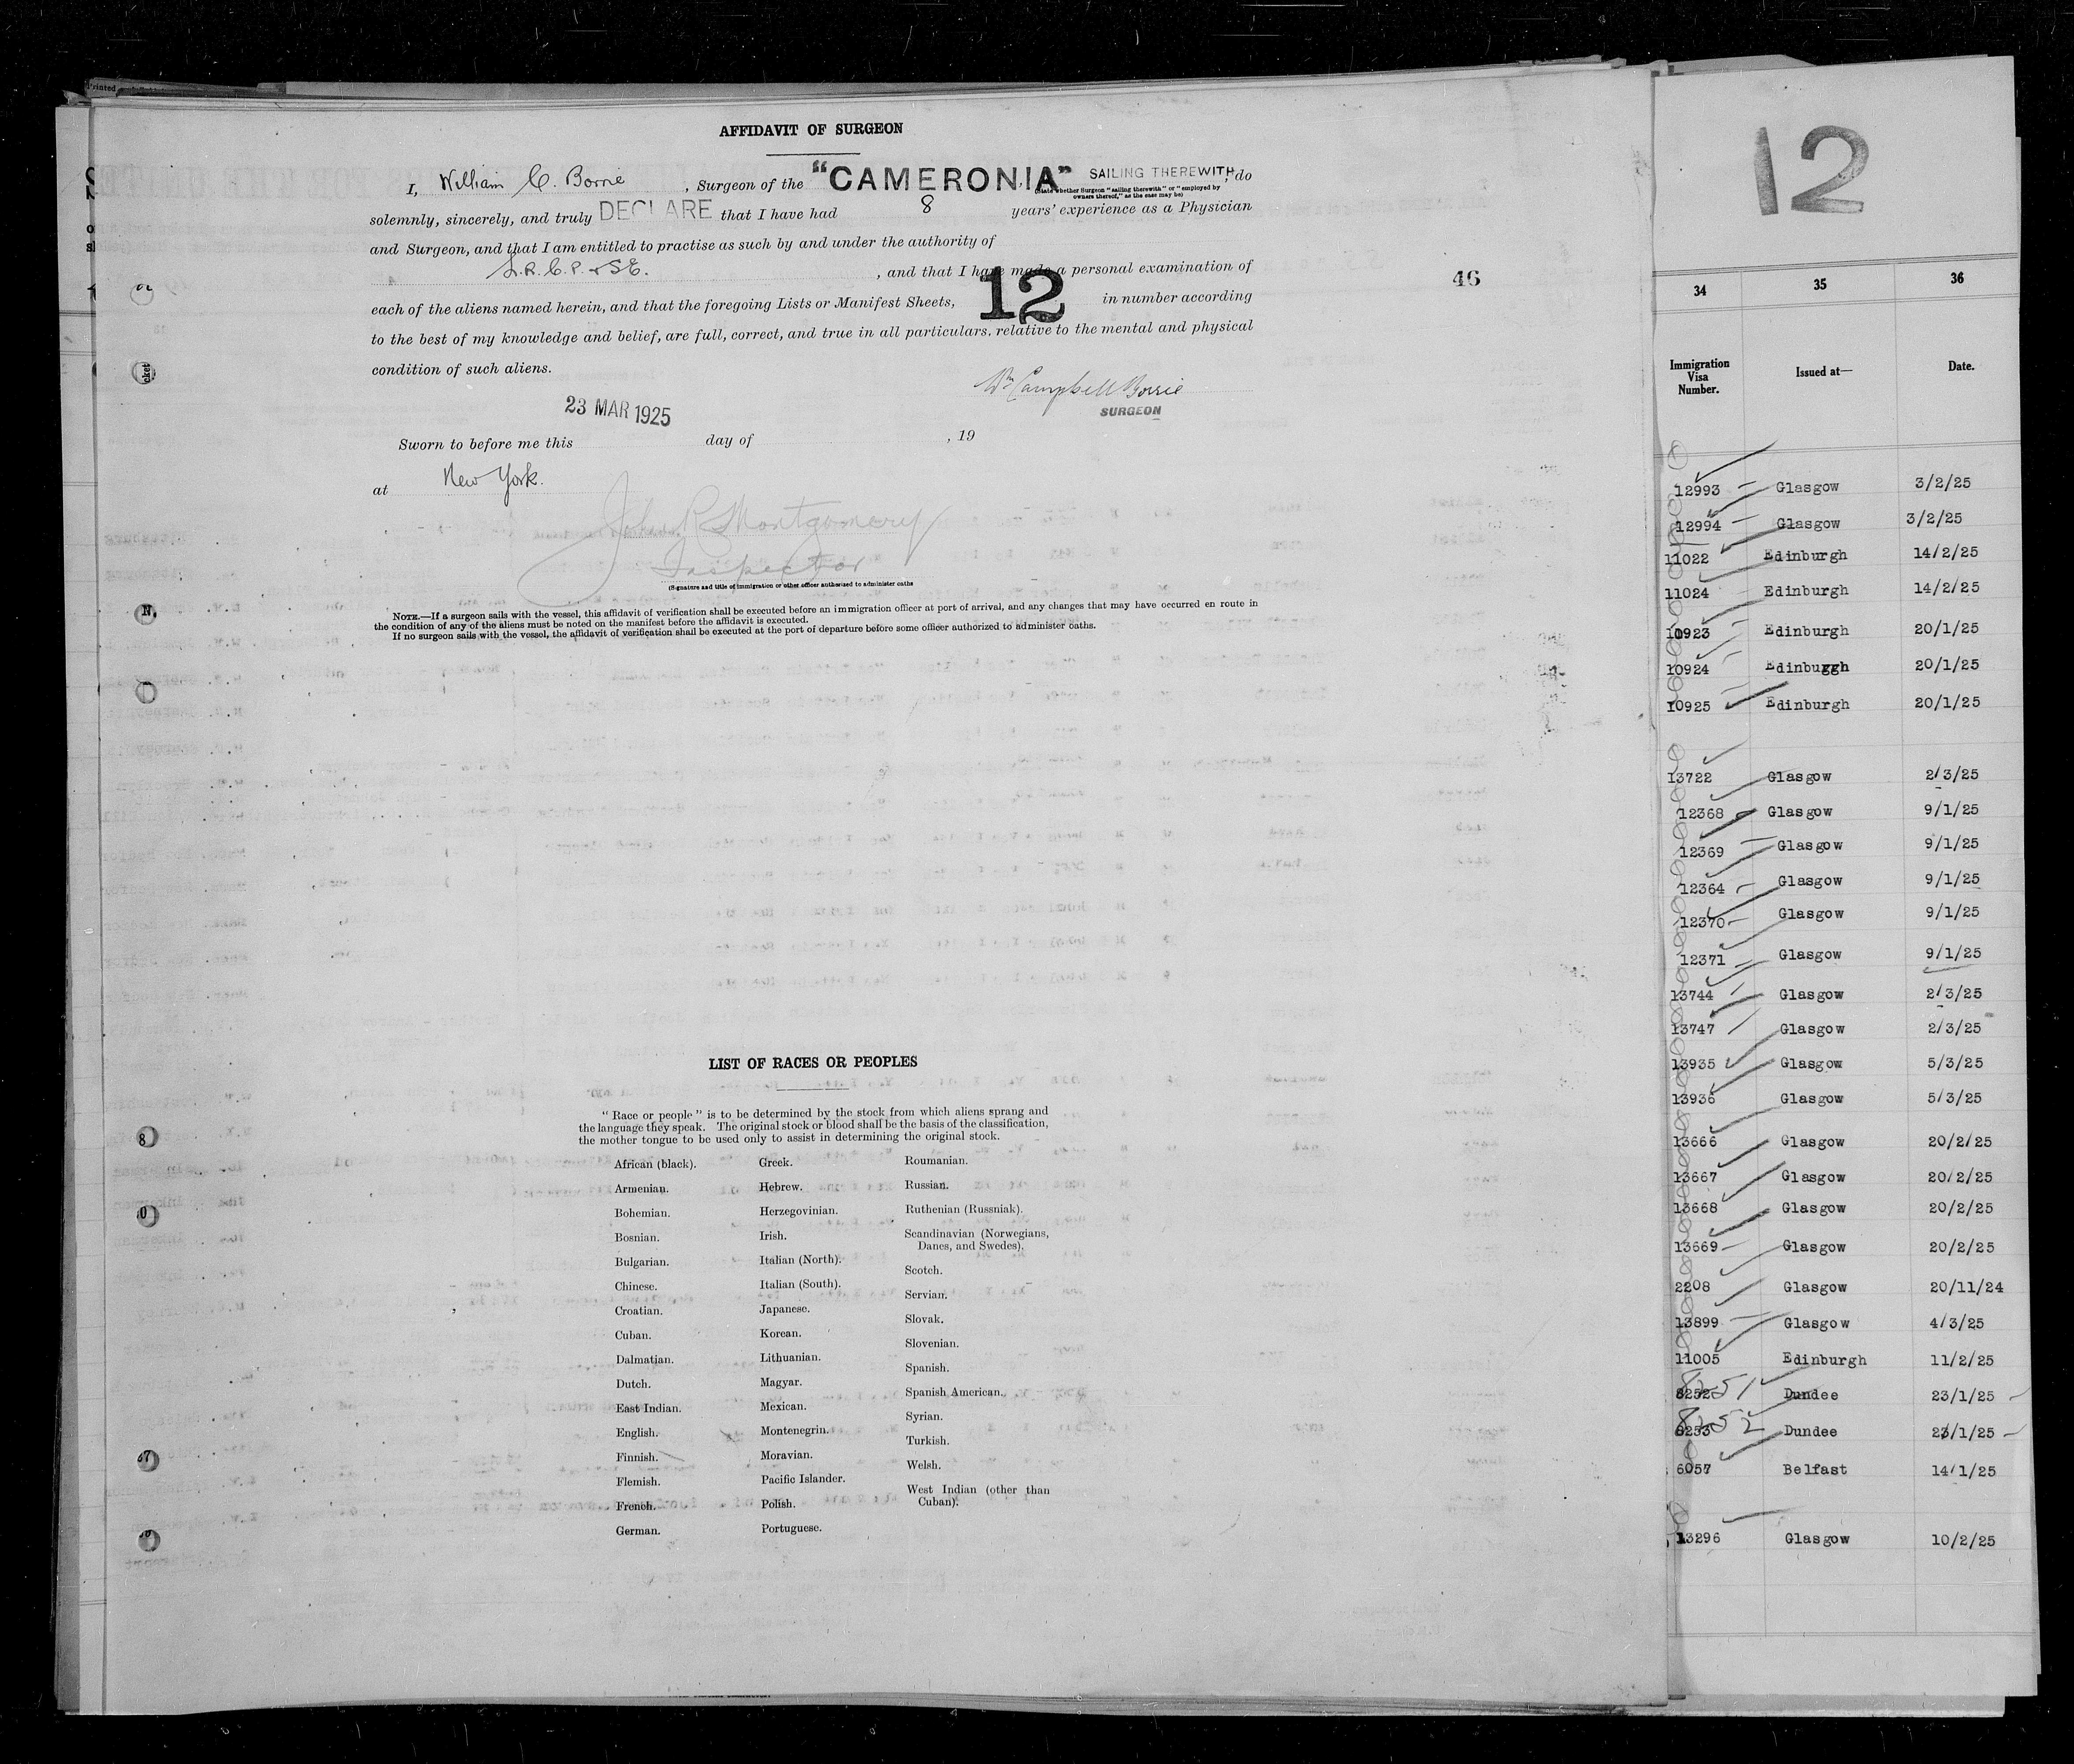 AFFIDAVIT OF SURGEON
I, William C. Borrie, Surgeon of the "CAMERONIA" SAILING THEREWITH, do
(State whether Surgeon "sailing therewith" or "employed by
owners thereof," as the case may be)
solemnly, sincerely, and truly DECLARE that I have had 8 years' experience as a Physician
and Surgeon, and that I am entitled to practise as such by and under the authority of
L.R.C.P. & S.E., and that I have made a personal examination of
each of the aliens named herein, and that the foregoing Lists or Manifest Sheets, 12 in number according
to the best of my knowledge and belief, are full, correct, and true in all particulars, relative to the mental and physical
condition of such aliens.
Wm Campbell Borrie
SURGEON
23 MAR 1925
Sworn to before me this day of , 19
at New York.
John R Montgomery
Inspector
(Signature and title of immigration or other officer authorized to administer oaths
NOTE.—If a surgeon sails with the vessel, this affidavit of verification shall be executed before an immigration officer at port of arrival, and any changes that may have occurred en route in
the condition of any of the aliens must be noted on the manifest before the affidavit is executed.
If no surgeon sails with the vessel, the affidavit of verification shall be executed at the port of departure before some officer authorized to administer oaths.
46
LIST OF RACES OR PEOPLES
"Race or people" is to be determined by the stock from which aliens sprang and
the language they speak. The original stock or blood shall be the basis of the classification,
the mother tongue to be used only to assist in determining the original stock.
African (black).
Armenian.
Bohemian.
Bosnian.
Bulgarian.
Chinese.
Croatian.
Cuban.
Dalmatian.
Dutch.
East Indian.
English.
Finnish.
Flemish.
French.
German.
Greek.
Hebrew.
Herzegovinian.
Irish.
Italian (North).
Italian (South).
Japanese.
Korean.
Lithuanian.
Magyar.
Mexican.
Montenegrin.
Moravian.
Pacific Islander.
Polish.
Portuguese.
Roumanian.
Russian.
Ruthenian (Russniak).
Scandinavian (Norwegians,
Danes, and Swedes).
Scotch.
Servian.
Slovak.
Slovenian.
Spanish.
Spanish American.
Syrian.
Turkish.
Welsh.
West Indian (other than
Cuban).
12
34 35 36
Immigration Visa Number. Issued at— Date.
12993 Glasgow 3/2/25
12994 Glasgow 3/2/25
11022 Edinburgh 14/2/25
11024 Edinburgh 14/2/25
10923 Edinburgh 20/1/25
10924 Edinburggh 20/1/25
10925 Edinburgh 20/1/25
13722 Glasgow 2/3/25
12368 Glasgow 9/1/25
12369 Glasgow 9/1/25
12364 Glasgow 9/1/25
12370 Glasgow 9/1/25
12371 Glasgow 9/1/25
13744 Glasgow 2/3/25
13747 Glasgow 2/3/25
13935 Glasgow 5/3/25
13936 Glasgow 5/3/25
13666 Glasgow 20/2/25
13667 Glasgow 20/2/25
13668 Glasgow 20/2/25
13669 Glasgow 20/2/25
2208 Glasgow 20/11/24
13899 Glasgow 4/3/25
11005 Edinburgh 11/2/25
8251 Dundee 23/1/25
8252 Dundee 23/1/25
6057 Belfast 14/1/25
13296 Glasgow 10/2/25